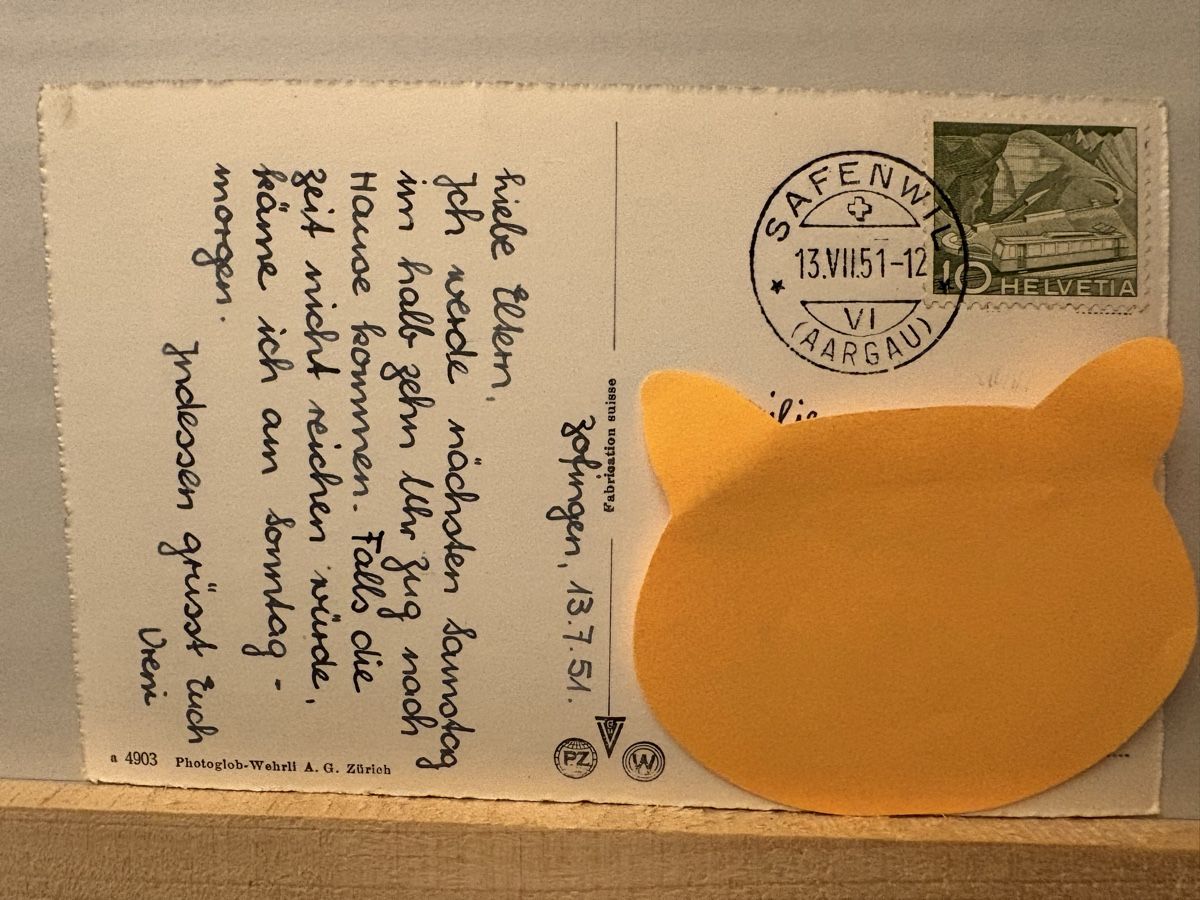 Zofingen, 13.7.51.
Liebe Eltern,
Ich werde nächsten Samstag
im halb zehn Uhr Zug nach
Hause kommen. Falls die
Zeit nicht reichen würde,
käme ich am Sonntag-
morgen.
Indessen grüsst Euch
Vreni
a 4903 Photoglob-Wehrli A. G. Zürich
Fabrication suisse
PZ
W
SAFENWIL
13.VII.51-12
VI
(AARGAU)
10 HELVETIA